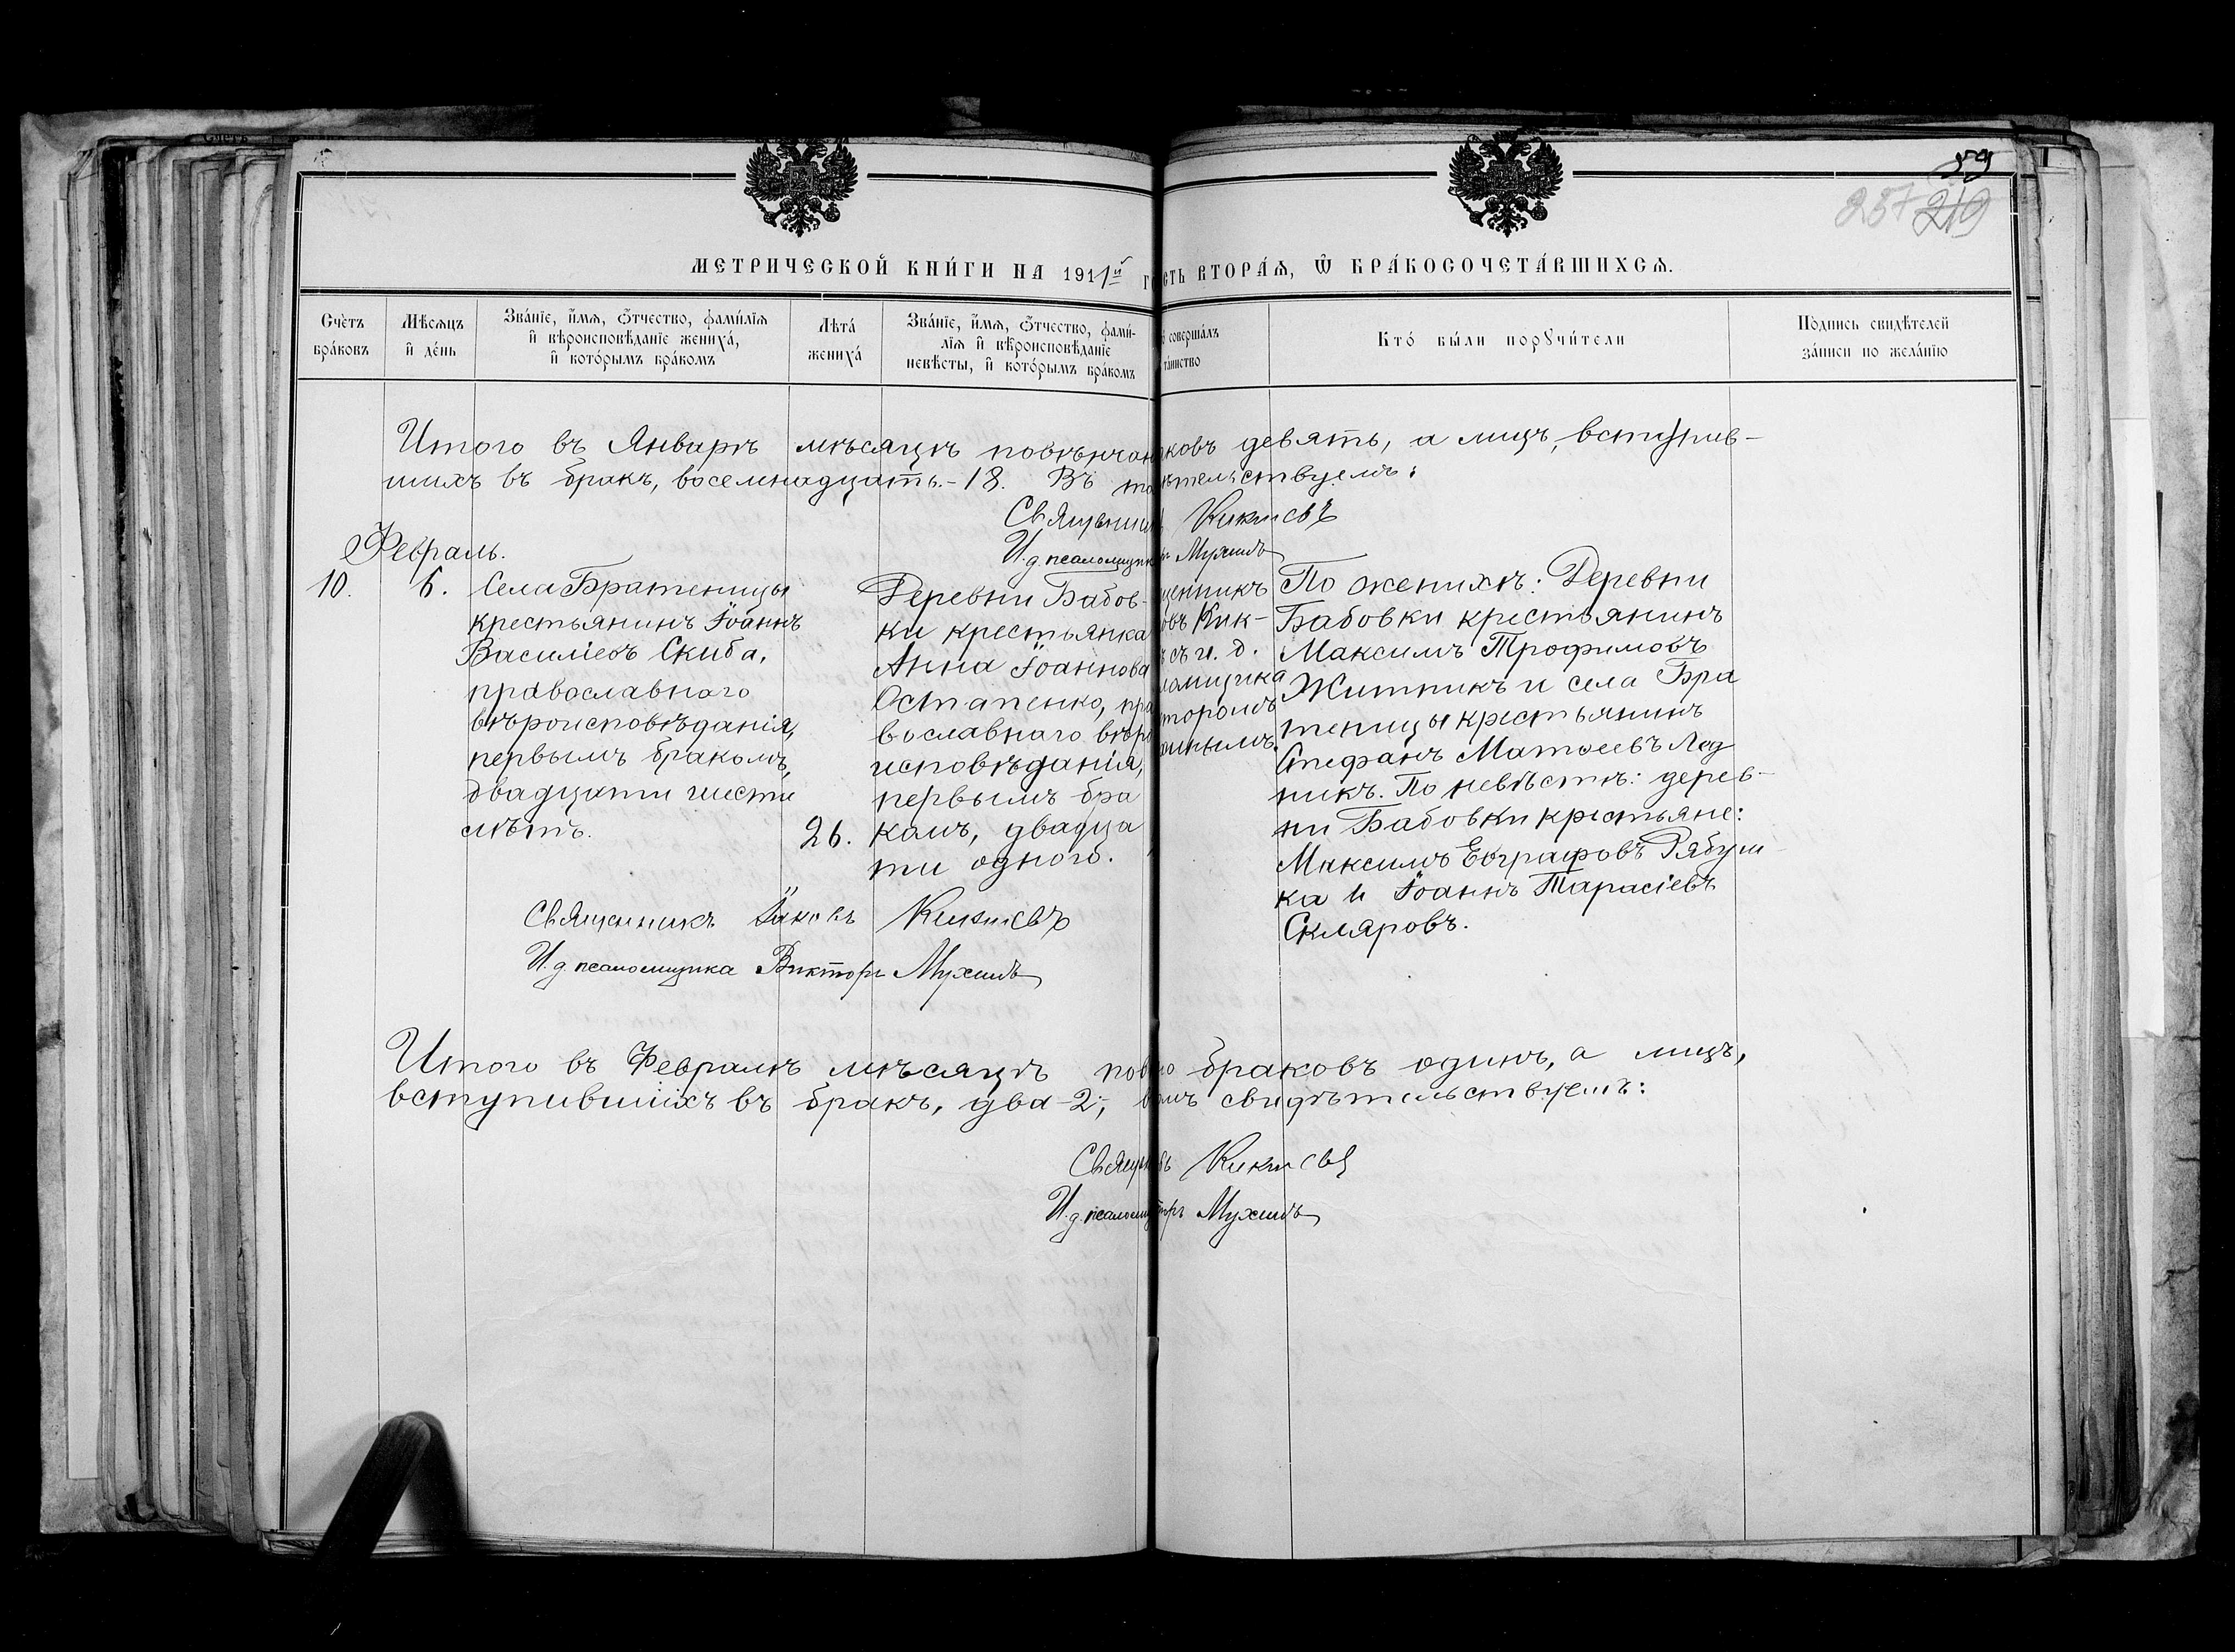 59
237 219
МЕТРИЧЕСКОЙ КНИ́ГИ НА 1911й го сть ВТОРА́Ѧ, Ѿ БРА́КОСОЧЕТА́ВШИХСѦ.
Счётъ бра́ковъ
Мѣсяцъ и́ де́нь
Зва́нїе, и҆́мѧ, ѻ҆́тчество, фами́лїѧ и҆ вѣроисповѣ́данїе жениха́, и҆ кото́рымъ бра́комъ
Лѣта́ жениха́
Зва́нїе, и҆́мѧ, ѻ҆́тчество, фами́лїѧ и҆ вѣроисповѣ́данїе невѣ́сты, и҆ кото́рымъ бра́комъ
соверша́лъ та́инство
Кто́ бы́ли порꙋчи́тели
По́дпись свидѣ́телей за́писи по жела́нїю
Итого въ Январѣ мѣсяцѣ повѣнчан ковъ девять, а лицъ, вступив-
шихъ въ бракъ, восемнадцать.-18. Въ то ѣтельствуемъ:
Священникъ Кикотевъ
И. д. псаломщик Мухинъ
Февраль.
10.
6.
Села Братеницы
крестьянинъ Іоаннъ
Василіевъ Скиба,
православнаго
вѣроисповѣданія,
первымъ бракомъ,
двадцати шести
лѣтъ.
26.
Деревни Бабов-
ки крестьянка
Анна Іоаннова
Остапенко, пра
вославнаго вѣро
исповѣданія,
первымъ бра
комъ, двадца
ти одного.
щенникъ
овъ Кик-
ъ съ и. д.
ломщика
торомъ
инымъ.
По женихѣ: Деревни
Бабовки крестьянинъ
Максимъ Трофимовъ
Житникъ и села Бра
теницы крестьянинъ
Стефанъ Матѳеевъ Лед
никъ. По невѣстѣ: дерев-
ни Бабовки крестьяне:
Максимъ Евграфовъ Рябуш-
ка и Іоаннъ Тарасіевъ
Скляровъ.
Священникъ Іаковъ Кикотевъ
И. д. псаломщика Викторъ Мухинъ
Итого въ Февралѣ мѣсяцѣ пов но браковъ одинъ, а лицъ,
вступившихъ въ бракъ, два-2; въ омъ свидѣтельствуемъ:
Священ въ Кикотевъ
И. д. псаломщ торъ Мухинъ